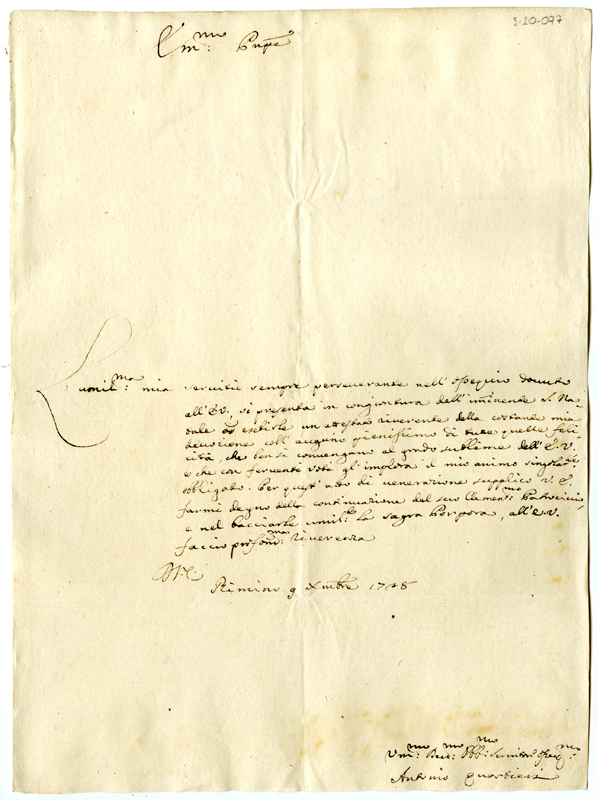 3-20-077
Em:mo Pnpe
L'umil:ma mia servitù sempre perseverante nell'ossequio dovuto
all'E.V., si presenta in conjontura dell'iminente S. Na-
tale ad esibirle un attestato riverente della costante mia
devozione coll'augurio pienissimo di tutte quelle feli-
cità, che ben si convengano al grado sublime dell'E.V.
e che con ferventi voti gl'implora il mio animo
obbligato. Per quest'atto di venerazione supplico V.E.
farmi degno della continuazione del suo Patrocinio,
e nel bacciarle umil:te la sagra Porpora, all'E.V.
faccio profond:ma riverenza
Rimino 9 Xmbre
Vm:mo Dev:mo Obb:mo Servitor
Antonio